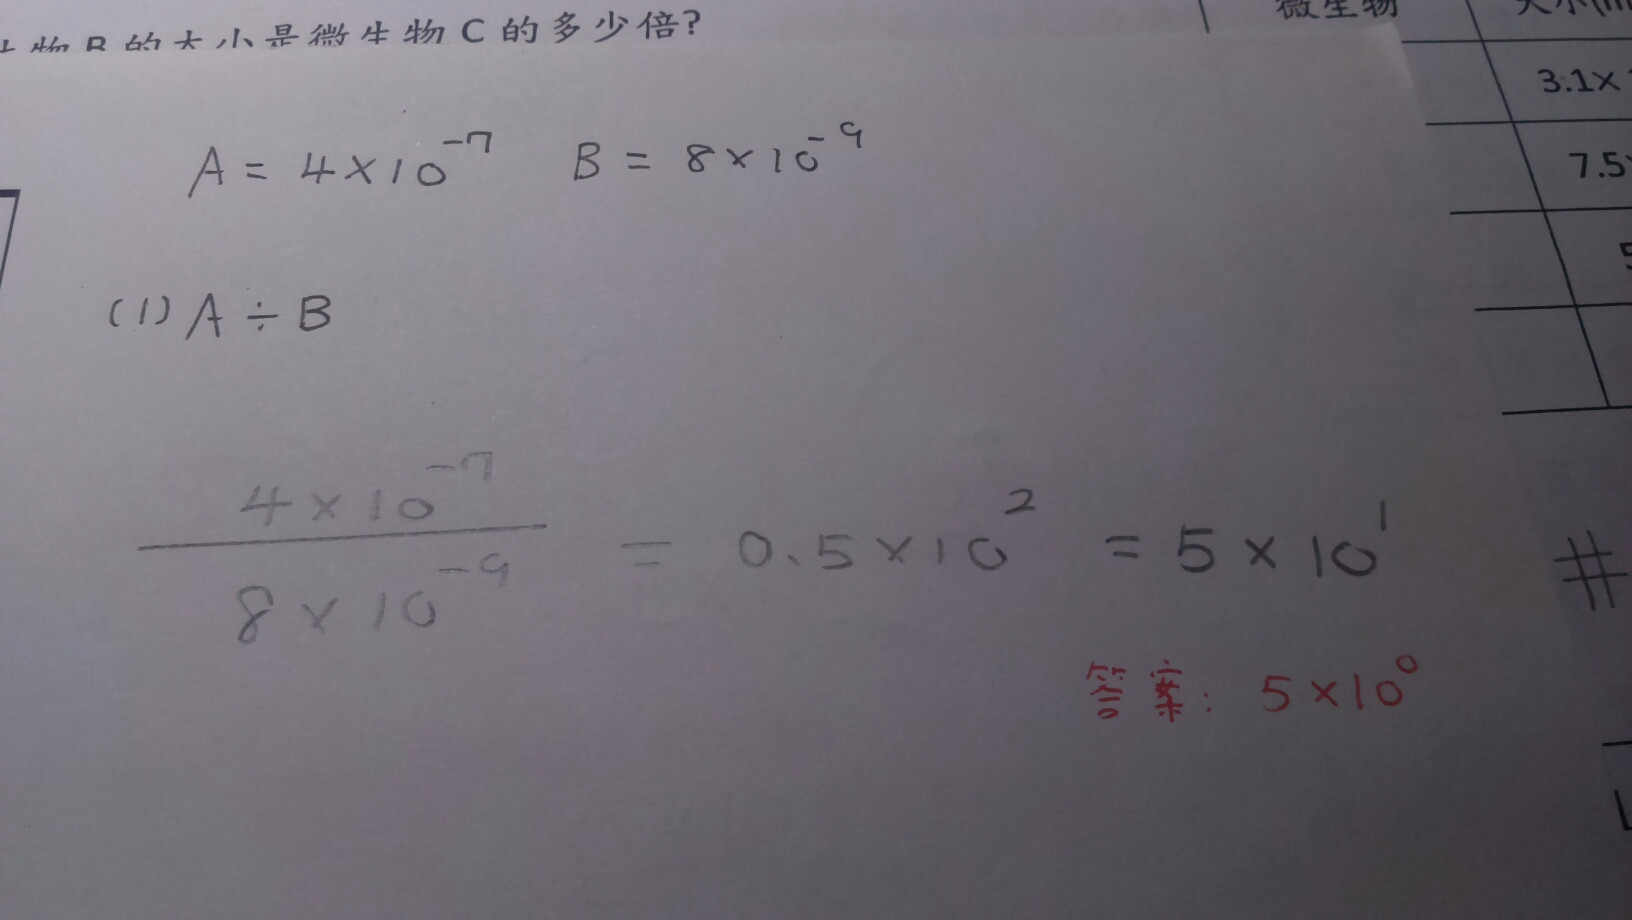 物 B 的大小是微生物 C 的多少倍?
微生物
3.1×
7.5
5
A = 4×10⁻⁷ B = 8×10⁻⁹
(1) A ÷ B
4×10⁻⁷
8×10⁻⁹
= 0.5×10² = 5×10¹
#
答案: 5×10⁰